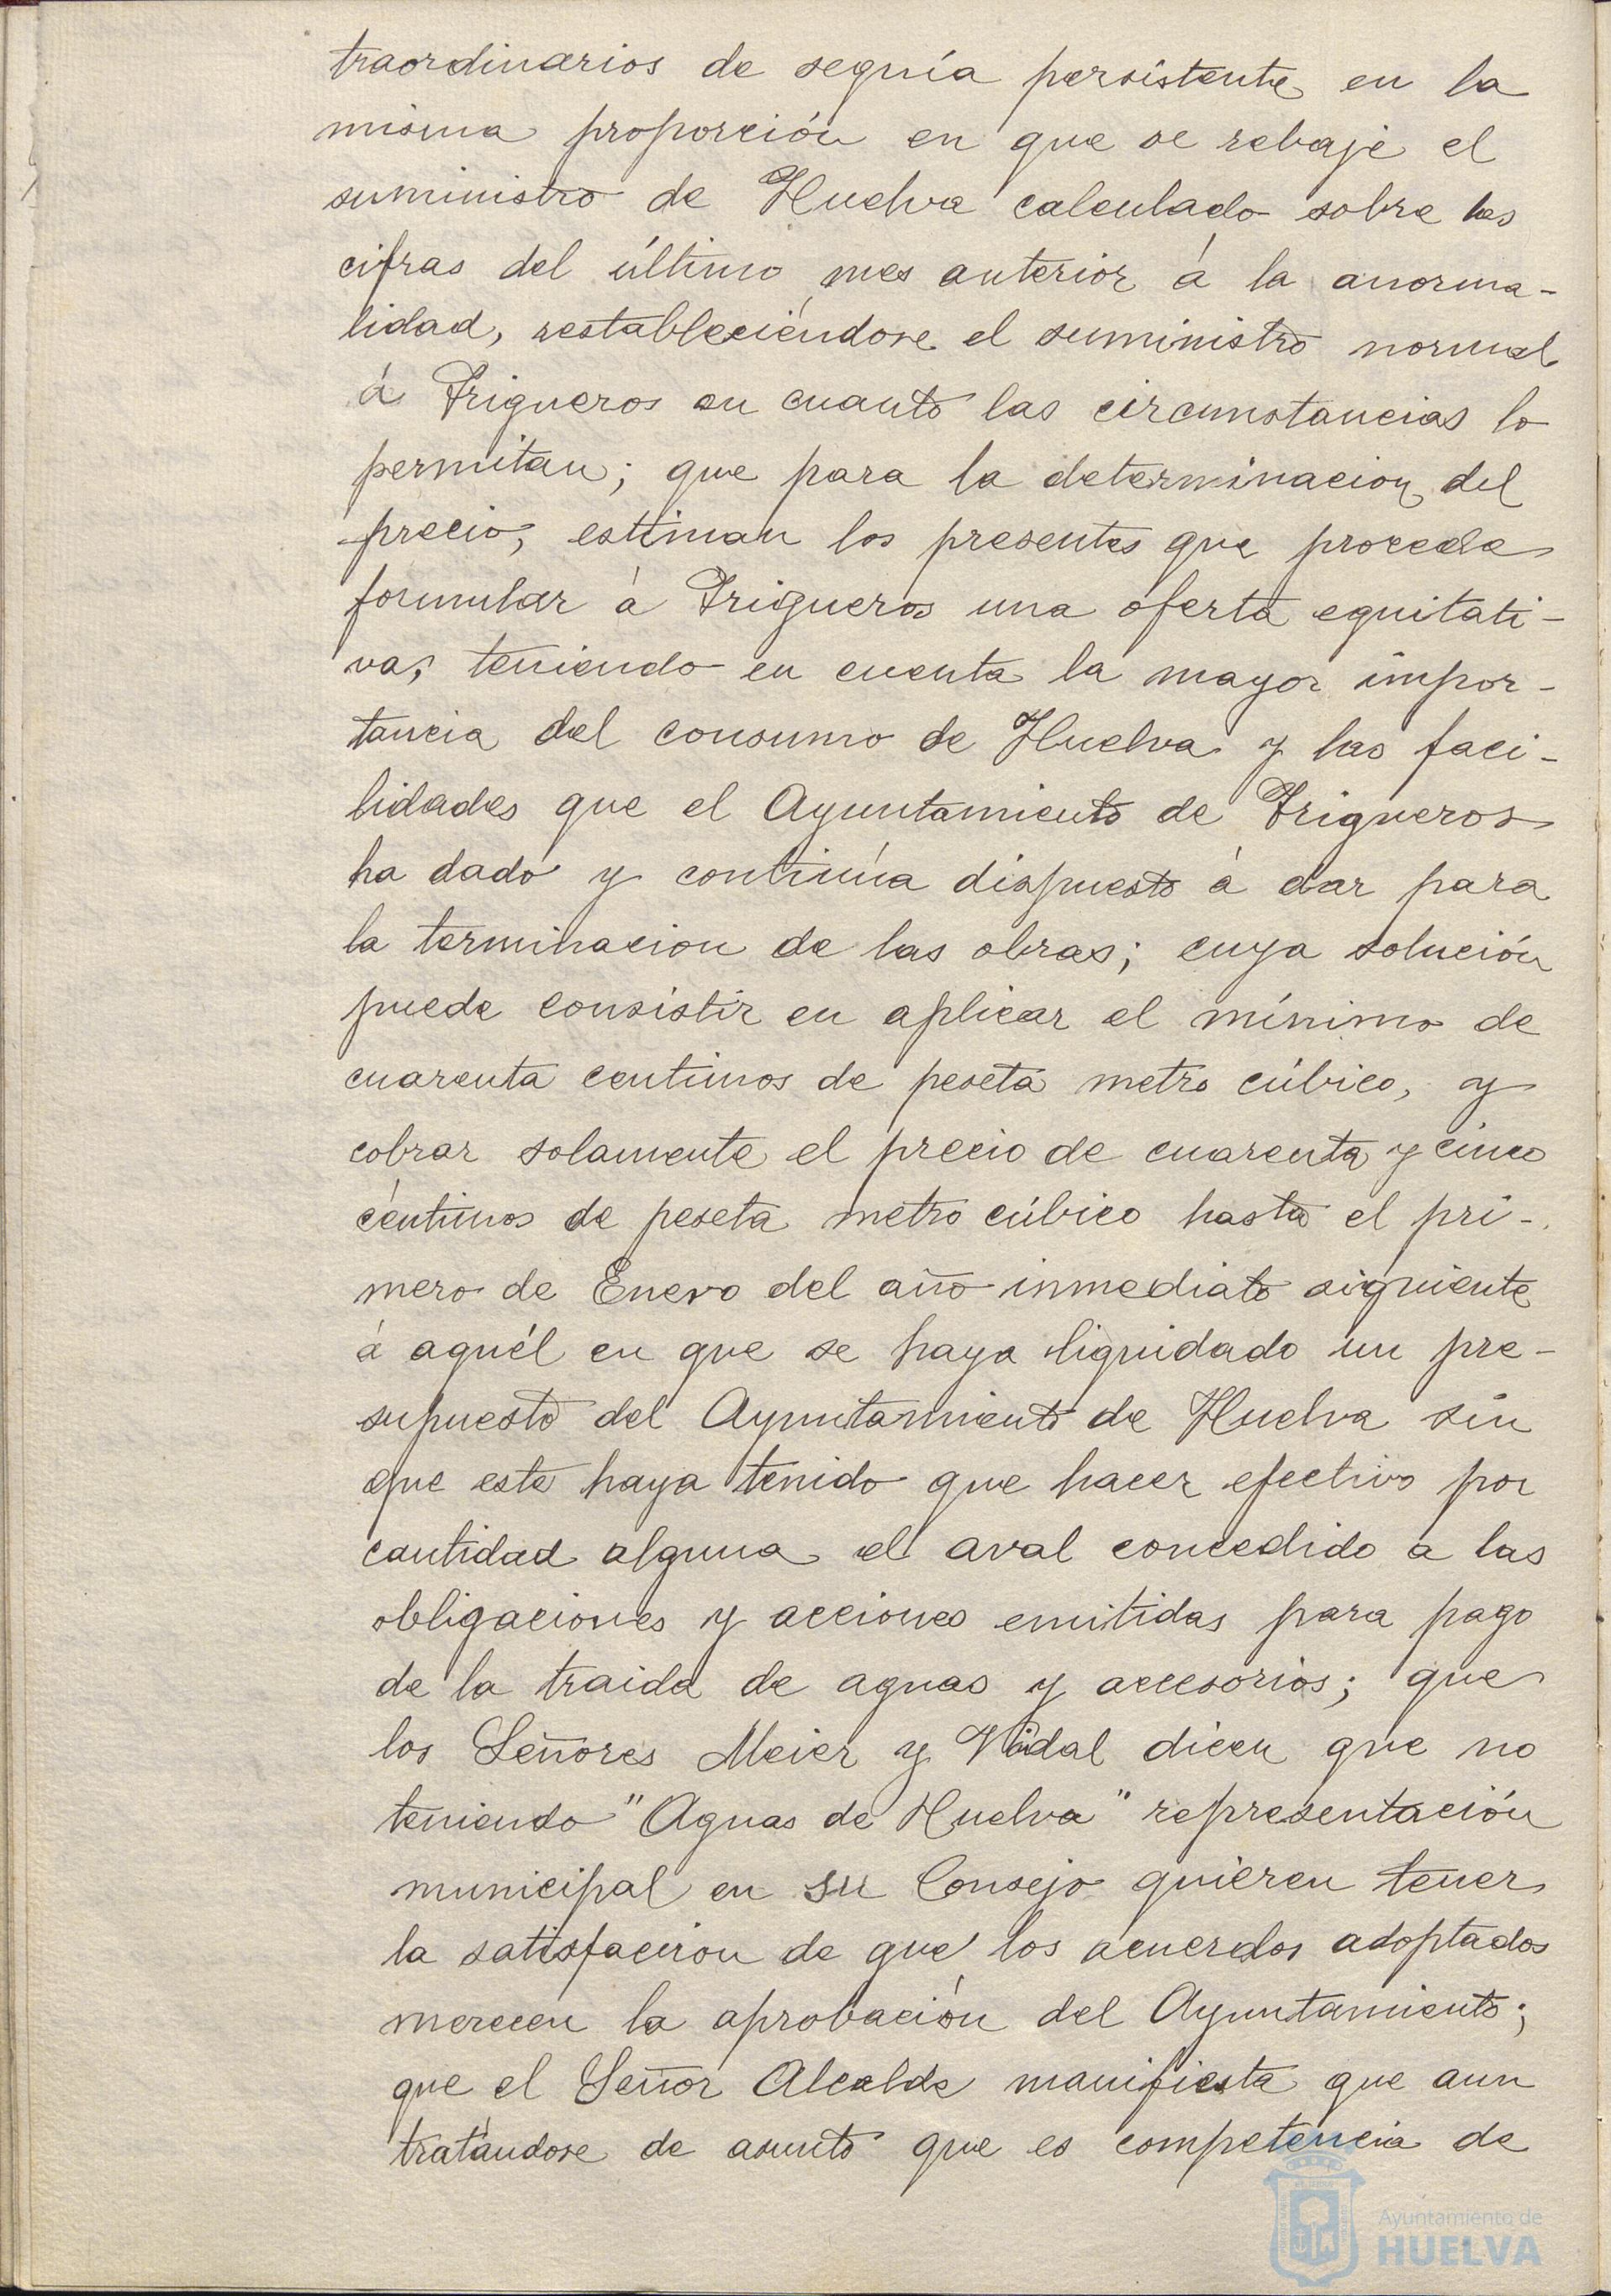 traordinarios de sequía persistente en la
misma proporción en que se rebaje el
suministro de Huelva calculado sobre las
cifras del último mes anterior á la anorma-
lidad, restableciéndose el suministro normal
á Trigueros en cuanto las circunstancias lo
permitan; que para la determinacion del
precio, estiman los presentes que procede
formular á Trigueros una oferta equitati-
va, teniendo en cuenta la mayor impor-
tancia del consumo de Huelva y las faci-
lidades que el Ayuntamiento de Trigueros
ha dado y continúa dispuesto á dar para
la terminacion de las obras; cuya solución
puede consistir en aplicar el mínimo de
cuarenta centimos de peseta metro cúbico, y
cobrar solamente el precio de cuarenta y cinco
céntimos de peseta metro cúbico hasta el pri-
mero de Enero del año inmediato siguiente
á aquél en que se haya liquidado un pre-
supuesto del Ayuntamiento de Huelva sin
que este haya tenido que hacer efectivo por
cantidad alguna el aval concedido a las
obligaciones y acciones emitidas para pago
de la traida de aguas y accesorios; que
los Señores Meier y Vidal dicen que no
teniendo "Aguas de Huelva" representación
municipal en su Consejo quieren tener
la satisfacion de que los acuerdos adoptados
merecen la aprobación del Ayuntamiento;
que el Señor Alcalde manifiesta que aun
tratándose de asunto que es competencia de
Ayuntamiento de
HUELVA